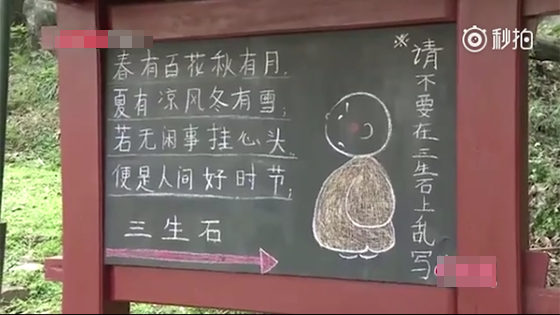 春有百花秋有月,
夏有凉风冬有雪;
若无闲事挂心头,
便是人间好时节;
三生石
※请不要在三生石上乱写
秒拍